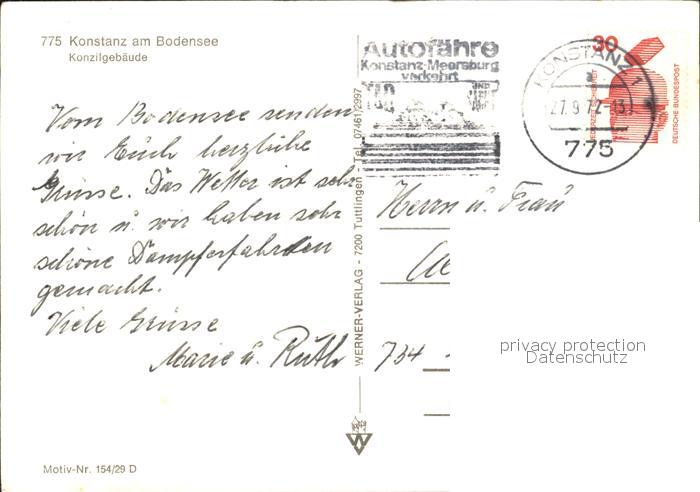 775 Konstanz am Bodensee
Konzilgebäude
Vom Bodensee senden
wir Euch herzliche
Grüsse. Das Wetter ist sehr
schön u. wir haben sehr
schöne Dampferfahrten
gemacht.
Viele Grüsse
Marie u. Ruth
Motiv-Nr. 154/29 D
WERNER-VERLAG - 7200 Tuttlingen - Tel. 07461/2997
Autofähre
Konstanz-Meersburg
verkehrt
TAG
UND
KONSTANZ 1
a
27.9.72-13
775
30
DEUTSCHE BUNDESPOST
Herrn u. Frau
734
privacy protection
Datenschutz